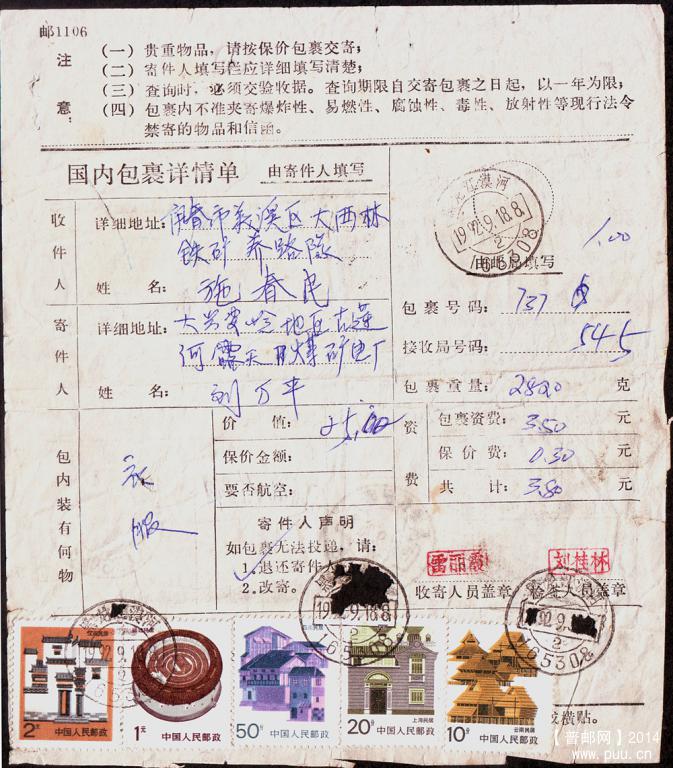 邮1106
注意：
(一) 贵重物品，请按保价包裹交寄；
(二) 寄件人填写栏应详细填写清楚；
(三) 查询时，必须交验收据。查询期限自交寄包裹之日起，以一年为限；
(四) 包裹内不准夹寄爆炸性、易燃性、腐蚀性、毒性、放射性等现行法令
禁寄的物品和信函。
国内包裹详情单 由寄件人填写
收件人
详细地址：伊春市美溪区大西林
铁矿养路队
姓 名：施春民
寄件人
详细地址：大兴安岭地区古莲
河露天煤矿电厂
姓 名：刘万平
江漠河
1992.9.18.8
2
165308
1.00
由邮局填写
包裹号码：737
接收局号码：545
包裹重量：2820 克
资费
包裹资费：3.50 元
保价费：0.30 元
共 计：3.80 元
包内装有何物
衣服
价 值：25.00
保价金额：
要否航空：
寄件人声明
如包裹无法投递，请：
1.退还寄件人
2.改寄。
雷丽霞 刘桂林
收寄人员盖章 检查人员盖章
1992.9.18.8
2
165308
92.9
2
165308
92.9.1
横贴。
2分 中国人民邮政
1元 中国人民邮政
50分 中国人民邮政
20分 上海民居 中国人民邮政
10分 云南民居 中国人民邮政
【普邮网】2014
www.puu.cn